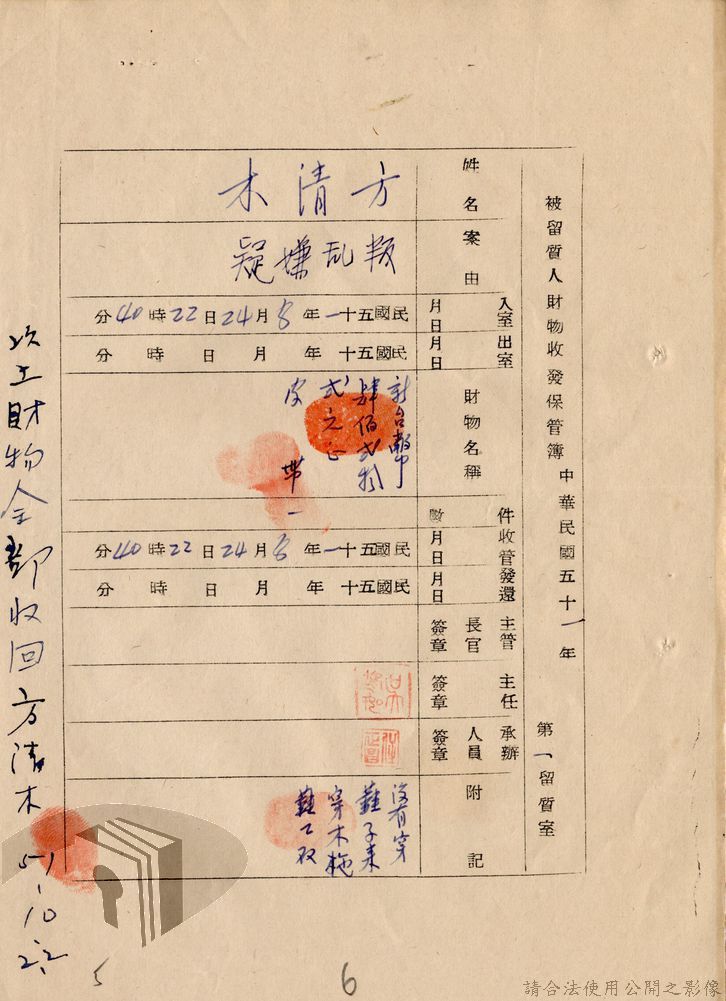 被留質人財物收發保管簿 中華民國五十一年 第一留質室
姓名 方清木
案由 叛乱嫌疑
入室月日 民國五十一年8月24日22時40分
出室月日 民國五十 年 月 日 時 分
財物名稱
新台幣
肆佰弍拾
弍元正
皮帶一
件數
收管月日 民國五十一年8月24日22時40分
發還月日 民國五十 年 月 日 時 分
主管長官簽章
主任簽章
承辦人員簽章
附記
沒有穿
鞋子來
穿木拖
鞋乙双
以上財物全部收回方清木 51-10.22.
5
6
請合法使用公開之影像